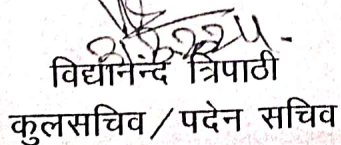 विद्यानन्द त्रिपाठी
कुलसचिव/पदेन सचिव